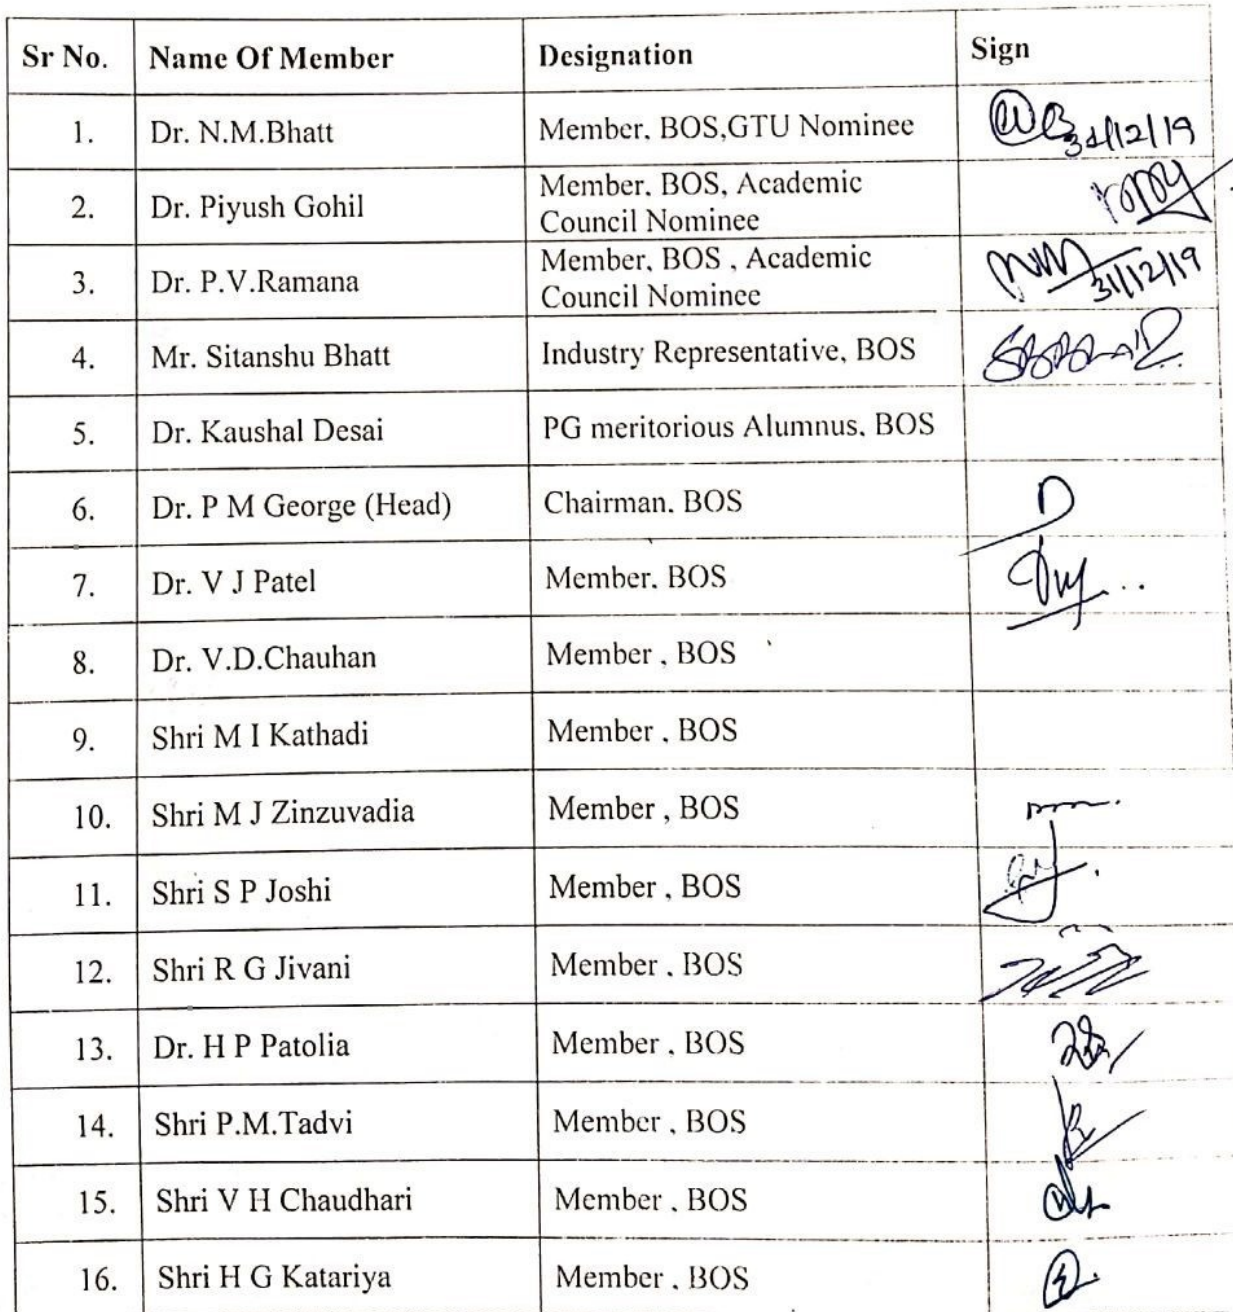 Sr No. Name Of Member Designation Sign
1. Dr. N.M.Bhatt Member, BOS,GTU Nominee 31/12/19
2. Dr. Piyush Gohil Member, BOS, Academic
Council Nominee
3. Dr. P.V.Ramana Member, BOS , Academic
Council Nominee 31/12/19
4. Mr. Sitanshu Bhatt Industry Representative, BOS
5. Dr. Kaushal Desai PG meritorious Alumnus, BOS
6. Dr. P M George (Head) Chairman, BOS
7. Dr. V J Patel Member, BOS
8. Dr. V.D.Chauhan Member , BOS
9. Shri M I Kathadi Member , BOS
10. Shri M J Zinzuvadia Member , BOS
11. Shri S P Joshi Member , BOS
12. Shri R G Jivani Member , BOS
13. Dr. H P Patolia Member , BOS
14. Shri P.M.Tadvi Member , BOS
15. Shri V H Chaudhari Member , BOS
16. Shri H G Katariya Member , BOS